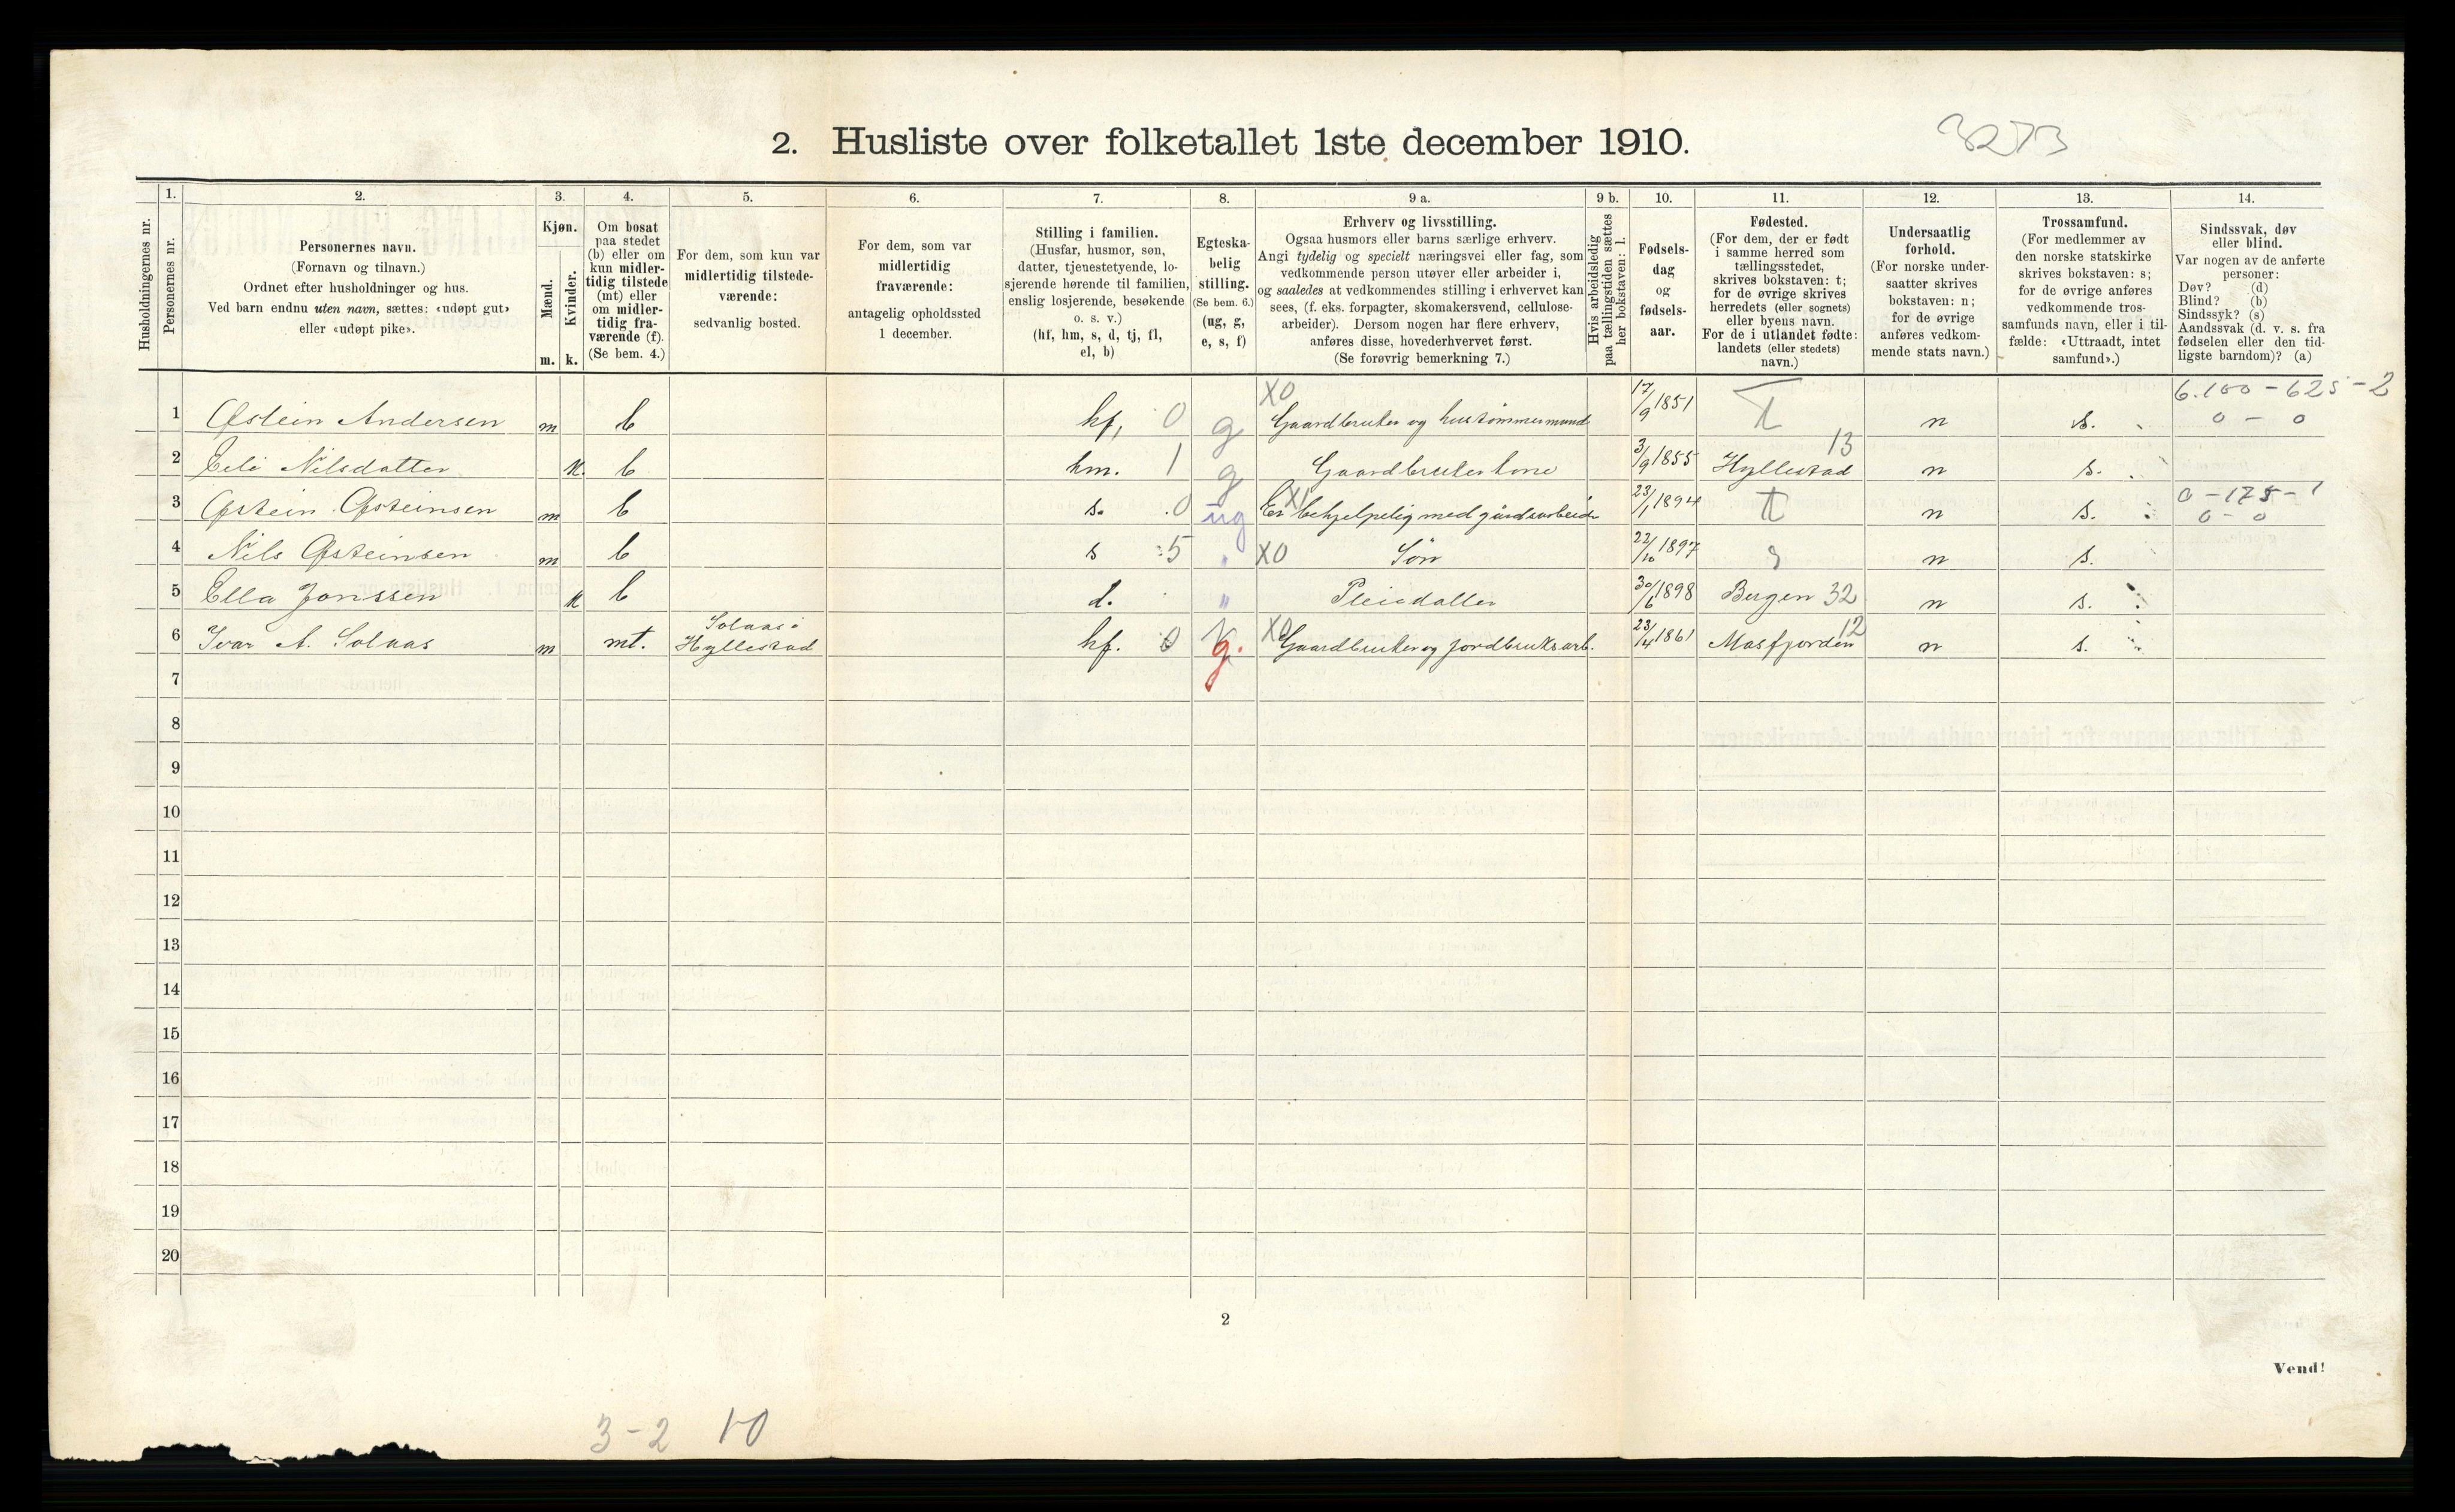 2. Husliste over folketallet 1ste december 1910.
3273
Husholdningernes nr.
1.
Personernes nr.
2.
Personernes navn.
(Fornavn og tilnavn.)
Ordnet efter husholdninger og hus.
Ved barn endnu uten navn, sættes: «udøpt gut»
eller «udøpt pike».
3.
Kjøn.
Mænd.
Kvinder.
m. k.
4.
Om bosat
paa stedet
(b) eller om
kun midler-
tidig tilstede
(mt) eller
om midler-
tidig fra-
værende (f).
(Se bem. 4.)
5.
For dem, som kun var
midlertidig tilstede-
værende:
sedvanlig bosted.
6.
For dem, som var
midlertidig
fraværende:
antagelig opholdssted
1 december.
7.
Stilling i familien.
(Husfar, husmor, søn,
datter, tjenestetyende, lo-
sjerende hørende til familien,
enslig losjerende, besøkende
o. s. v.)
(hf, hm, s, d, tj, fl,
el, b)
8.
Egteska-
belig
stilling.
(Se bem. 6.)
(ug, g,
e, s, f)
9 a.
Erhverv og livsstilling.
Ogsaa husmors eller barns særlige erhverv.
Angi tydelig og specielt næringsvei eller fag, som
vedkommende person utøver eller arbeider i,
og saaledes at vedkommendes stilling i erhvervet kan
sees, (f. eks. forpagter, skomakersvend, cellulose-
arbeider). Dersom nogen har flere erhverv,
anføres disse, hovederhvervet først.
(Se forøvrig bemerkning 7.)
9 b.
Hvis arbeidsledig
paa tællingstiden sættes
her bokstaven: l.
10.
Fødsels-
dag
og
fødsels-
aar.
11.
Fødested.
(For dem, der er født
i samme herred som
tællingsstedet,
skrives bokstaven: t;
for de øvrige skrives
herredets (eller sognets)
eller byens navn.
For de i utlandet fødte:
landets (eller stedets)
navn.)
12.
Undersaatlig
forhold.
(For norske under-
saatter skrives
bokstaven: n;
for de øvrige
anføres vedkom-
mende stats navn.)
13.
Trossamfund.
(For medlemmer av
den norske statskirke
skrives bokstaven: s;
for de øvrige anføres
vedkommende tros-
samfunds navn, eller i til-
fælde: «Uttraadt, intet
samfund».)
14.
Sindssvak, døv
eller blind.
Var nogen av de anførte
personer:
Døv? (d)
Blind? (b)
Sindssyk? (s)
Aandssvak (d. v. s. fra
fødselen eller den tid-
ligste barndom)? (a)
6.100 - 625 - 2
1 Østein Andersen m b hf, 0 g XO Gaardbruker og hustømmermand 17/9 1851 T n s. 0 - 0
2 Eeli Nilsdatter k. b hm. 1 g Gaardbrukerkone 3/9 1855 Hyllestad 13 n s.
3 Østein Østeinsen m b s. 0 ug Er behjelpelig med gårdsarbeide 23/1 1894 t n s. 0 - 175 - 1
0 - 0
4 Nils Østeinsen m b s 5 " XO Søn 22/10 1897 n s.
5 Ella Jonssen k b d. " Pleiedatter 30/6 1898 Bergen 32 n s.
6 Ivar A. Solaas m mt. Solaas i
Hyllestad hf. 0 g. XO Gaardbruker og jordbruksarb. 23/4 1861 Masfjorden 12 n s.
7
8
9
10
11
12
13
14
15
16
17
18
19
20
2
Vend!
3 - 2 10